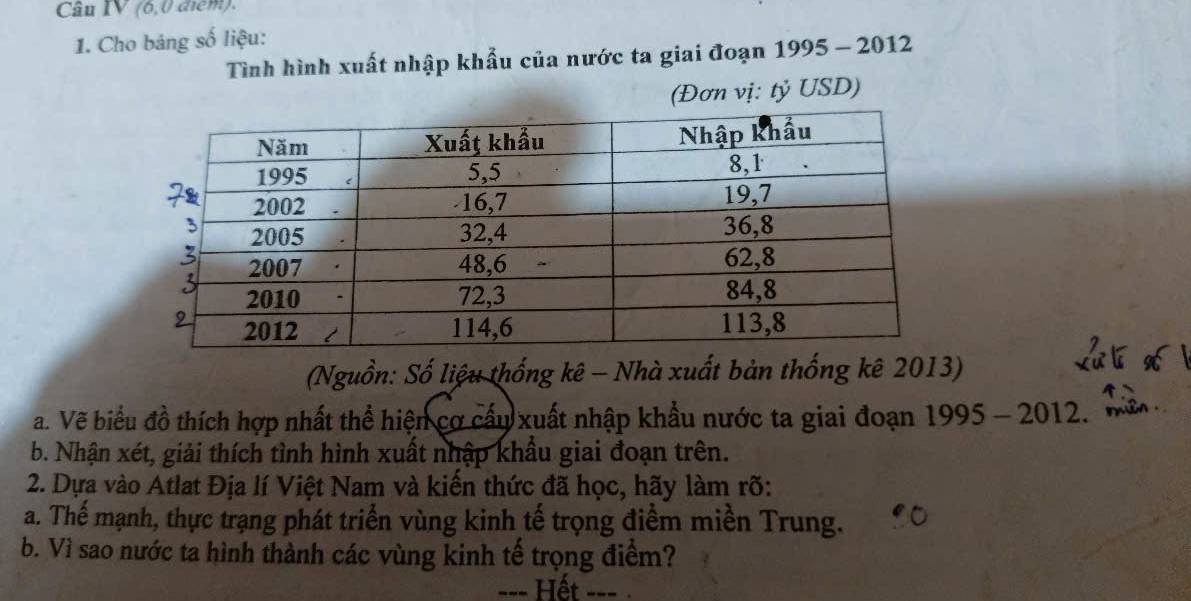 Câu IV (6,0 điểm).
1. Cho bảng số liệu:
Tình hình xuất nhập khẩu của nước ta giai đoạn 1995 – 2012
(Đơn vị: tỷ USD)
Năm Xuất khẩu Nhập khẩu
1995 5,5 8,1
7 2002 16,7 19,7
3 2005 32,4 36,8
3 2007 48,6 62,8
3 2010 72,3 84,8
2 2012 114,6 113,8
(Nguồn: Số liệu thống kê – Nhà xuất bản thống kê 2013)
a. Vẽ biểu đồ thích hợp nhất thể hiện cơ cấu xuất nhập khẩu nước ta giai đoạn 1995 – 2012. miền.
b. Nhận xét, giải thích tình hình xuất nhập khẩu giai đoạn trên.
2. Dựa vào Atlat Địa lí Việt Nam và kiến thức đã học, hãy làm rõ:
a. Thế mạnh, thực trạng phát triển vùng kinh tế trọng điểm miền Trung.
b. Vì sao nước ta hình thành các vùng kinh tế trọng điểm?
--- Hết ---